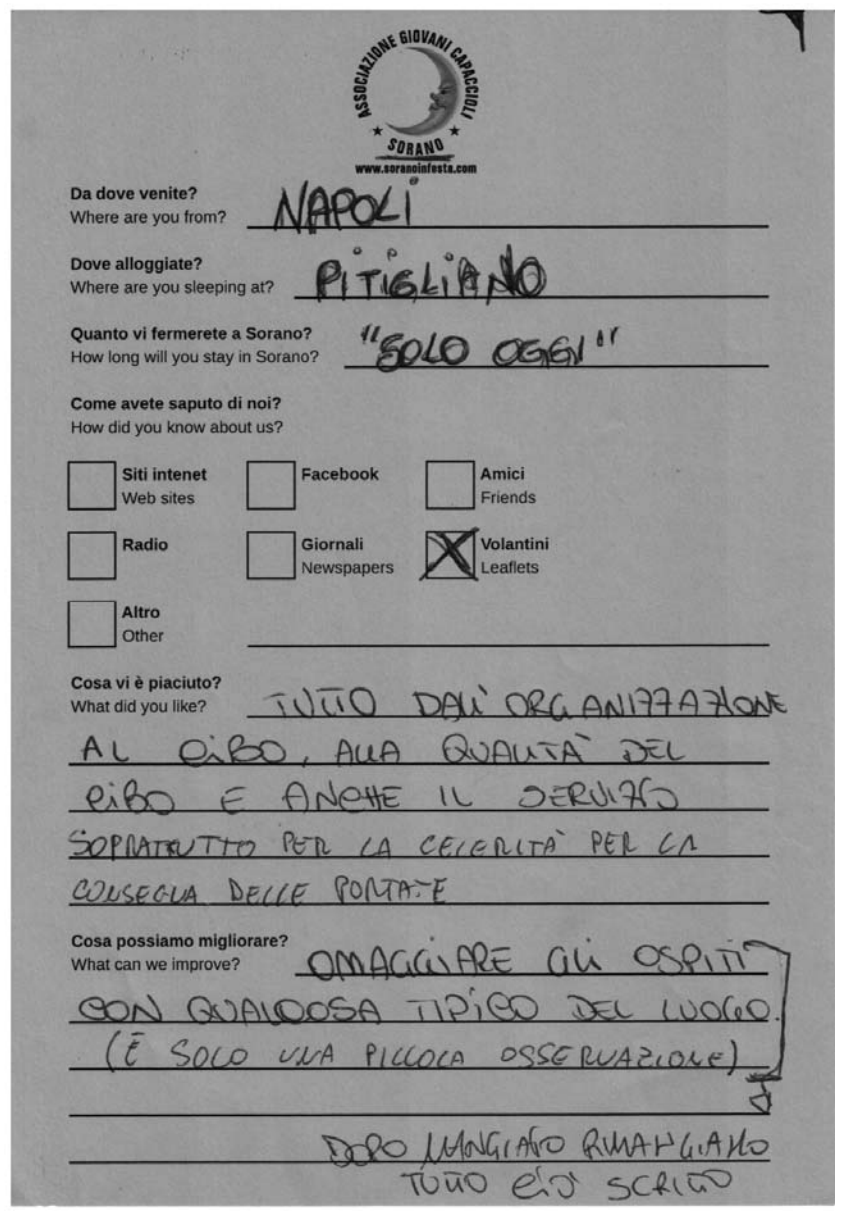 ASSOCIAZIONE GIOVANI CAPACCIOLI
SORANO
www.soranoinfesta.com
Da dove venite?
Where are you from? NAPOLI
Dove alloggiate?
Where are you sleeping at? PITIGLIANO
Quanto vi fermerete a Sorano?
How long will you stay in Sorano? "SOLO OGGI"
Come avete saputo di noi?
How did you know about us?
Siti intenet Facebook Amici
Web sites Friends
Radio Giornali X Volantini
Newspapers Leaflets
Altro
Other
Cosa vi è piaciuto?
What did you like? TUTTO DALL'ORGANIZZAZIONE
AL CIBO, ALLA QUALITÀ DEL
CIBO E ANCHE IL SERVIZIO
SOPRATTUTTO PER LA CELERITÀ PER LA
CONSEGNA DELLE PORTATE
Cosa possiamo migliorare?
What can we improve? OMAGGIARE GLI OSPITI
CON QUALCOSA TIPICO DEL LUOGO.
(È SOLO UNA PICCOLA OSSERVAZIONE)
DOPO MANGIATO RIMANGIAMO
TUTTO CIÒ SCRITTO